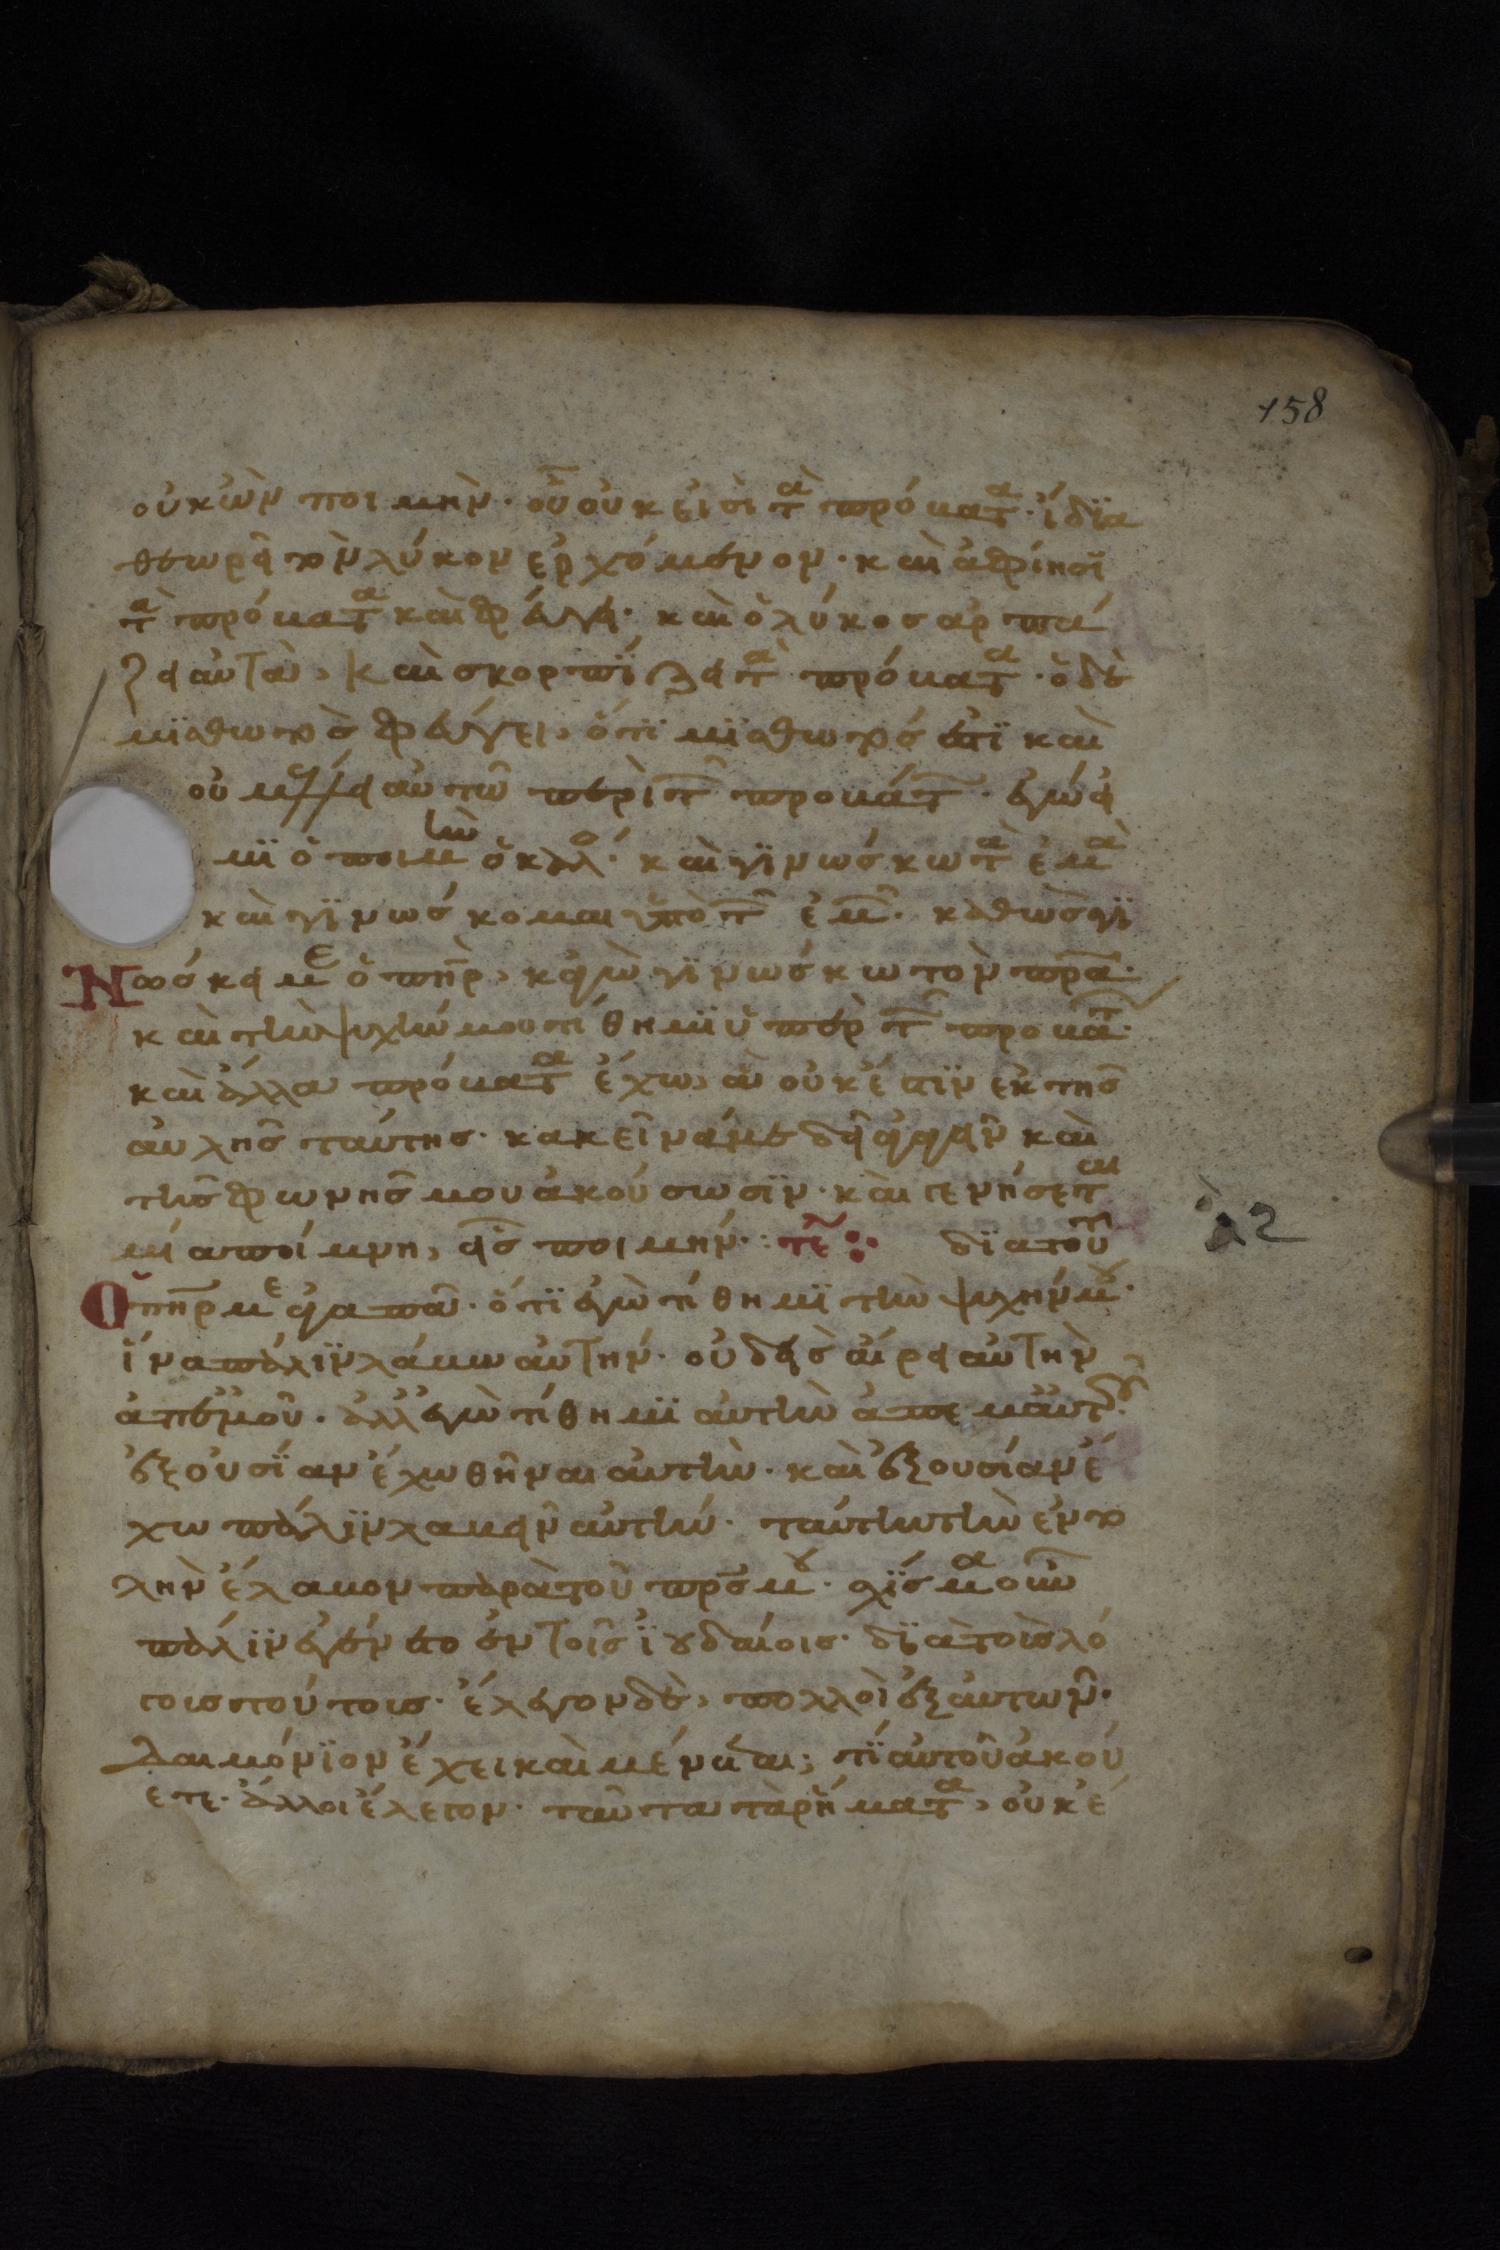 158
οὐκ ὢν ποιμὴν· οὗ οὐκ εἰσὶ τὰ πρόβατα ἴδϊα
θεωρεῖ τὸν λύκον ἐρχόμενον· καὶ ἀφίησϊ
τὰ πρόβατα καὶ φεύγει· καὶ ὁ λύκοσ αρπά
ζει αὐτὰ, καὶ σκορπίζει τὰ πρόβατα· ὁ δὲ
μϊσθωτὸσ φεύγει, ὅτϊ μϊσθωτόσ ἐστϊ καὶ
οὐ μέλει αὐτῶ περὶ τῶν προβάτων· ἐγώ εἰ
μϊ ὁ ποιμὴν ὁ καλὸσ· καὶ γϊνώσκω τὰ ἐμὰ
καὶ γϊνώσκομαι ὑπὸ τῶν ἐμῶν· καθὼσ γϊ
Νώσκει με ὁ πηρ, καγὼ γϊνώσκω τὸν πρα·
καὶ τὴν ψυχήν μου τίθημϊ ὑπὲρ τῶν προβάτων·
καὶ ἄλλα πρόβατα ἔχω, ἃ οὐκ ἔστϊν ἐκ τῆσ
αὐλῆσ ταύτησ· κακεῖνά με δεῖ ἀγαγεῖν καὶ
τῆσ φωνῆσ μου ἀκούσωσϊν· καὶ γενήσεται
μία ποίμνη, εἷσ ποιμήν· τε
διατοῦτο
λ2
Ο πηρ με ἀγαπᾶ· ὅτϊ ἐγὼ τίθημϊ τὴν ψυχήν μου·
ἵνα πάλϊν λάβω αὐτήν· οὐδεὶσ αἴρει αὐτὴν
ἀπεμοῦ· ἀλλ ἐγὼ τίθημϊ αὐτὴν ἀπ ἐμαυτοῦ·
ἐξουσίαν ἔχω θῆναι αὐτὴν· καὶ ἐξουσίαν ἔ
χω πάλϊν λαβεῖν αὐτήν· ταύτην τὴν ἐντο
λὴν ἔλαβον παρὰ τοῦ πρσ μου· σχϊσμα οὖν
πάλϊν ἐγένετο ἐν τοῖσ ϊουδαίοισ· δϊὰ τοὺσ λό
γουσ τούτουσ· ἔλεγον δὲ, πολλοὶ ἐξ αὐτῶν·
Δαιμόνϊον ἔχει καὶ μένεται; τί αὐτοῦ ἀκού
ετε· ἄλλοι ἔλεγον· ταῦτα τὰ ρήματα, οὐκ ἔ